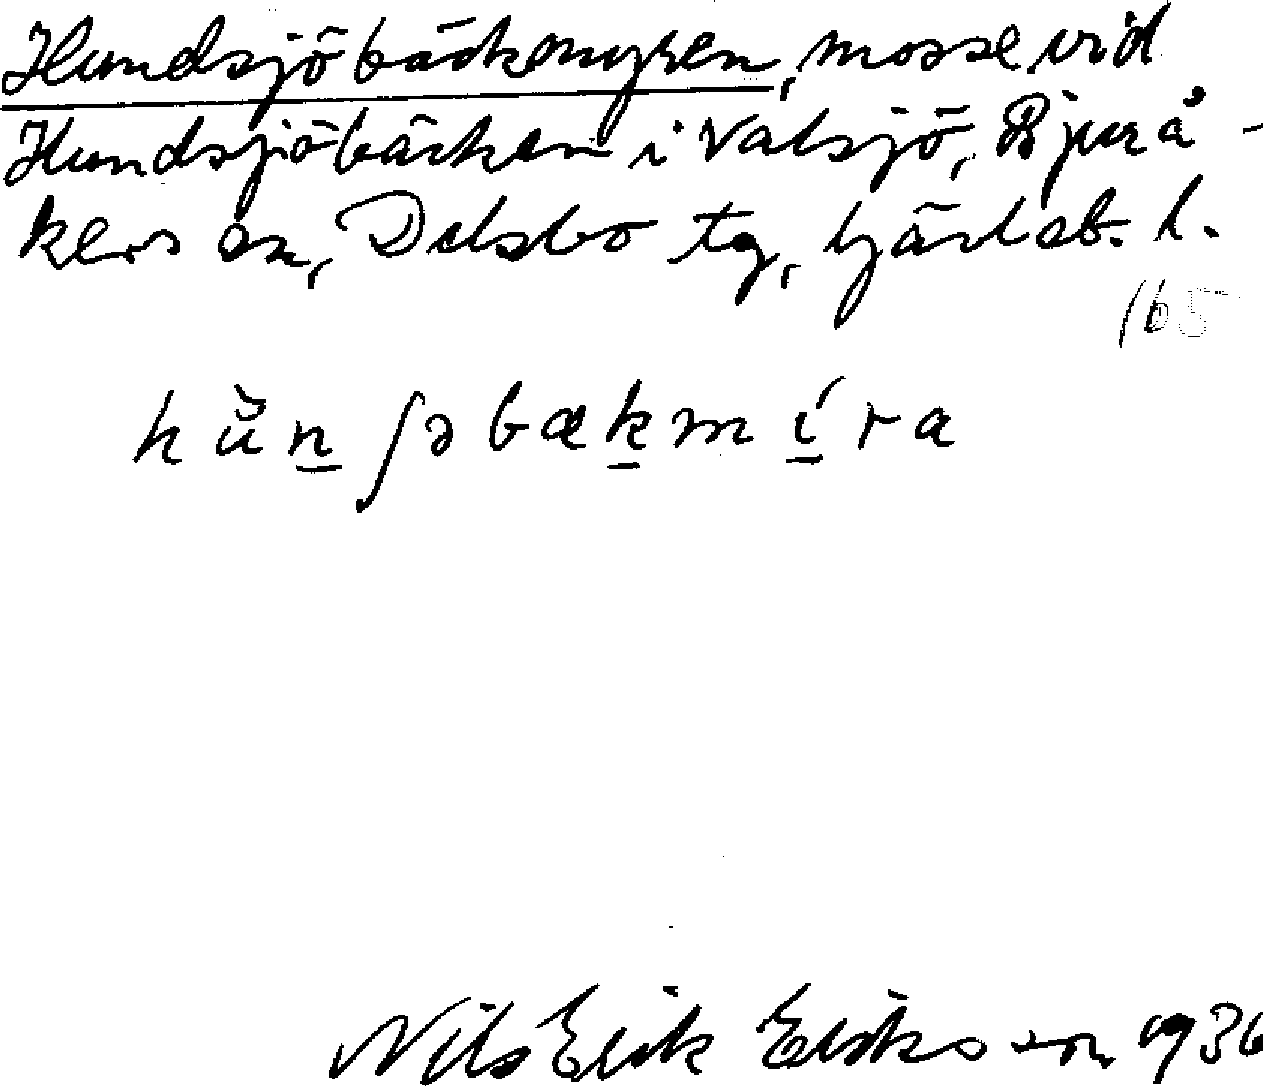 Hundsjöbäckenmyren, mosse vid
Hundsjöbäcken i Valsjö, Bjurå-
kers sn, Delsbo tg, Gävleb. l.
165
hŭn̲ʃəbæk̲mí̲ra
Nils Erik Eriksson 1936